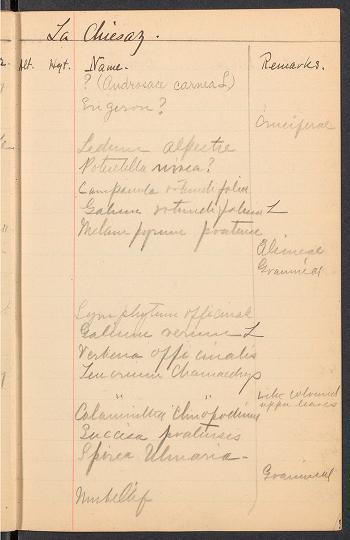 La Chiesaz.
Alt. Hgt. Name. Remarks.
? (Androsace carnea L)
Erigeron?
Cruciferae
Sedum alpestre
Potentilla nivea?
Campanula rotundifolia
Galium rotundifolium L
Melampyrum pratense
Alsineae
Gramineae
Symphytum officinale
Galium verum L
Verbena officinalis
Teucrium Chamaedrys
" " lilac coloured
upper leaves
Calamintha Clinopodium
Succisa pratensis
Spirea Ulmaria -
Gramineae
Umbellif